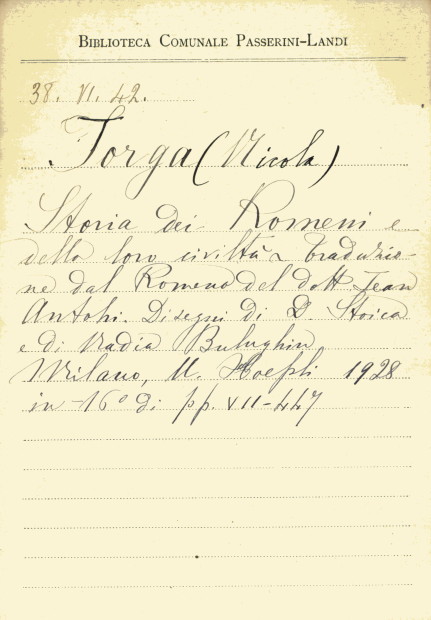 BIBLIOTECA COMUNALE PASSERINI-LANDI
38. VI. 42.
Jorga (Nicola)
Storia dei Romeni e
della loro civiltà Traduzio-
ne dal Romeno del dott. Jean
Antohi. Disegni di D. Stoica
e di Nadia Bulughin
Milano, U. Hoepli 1928
in-16° di pp. VII-447